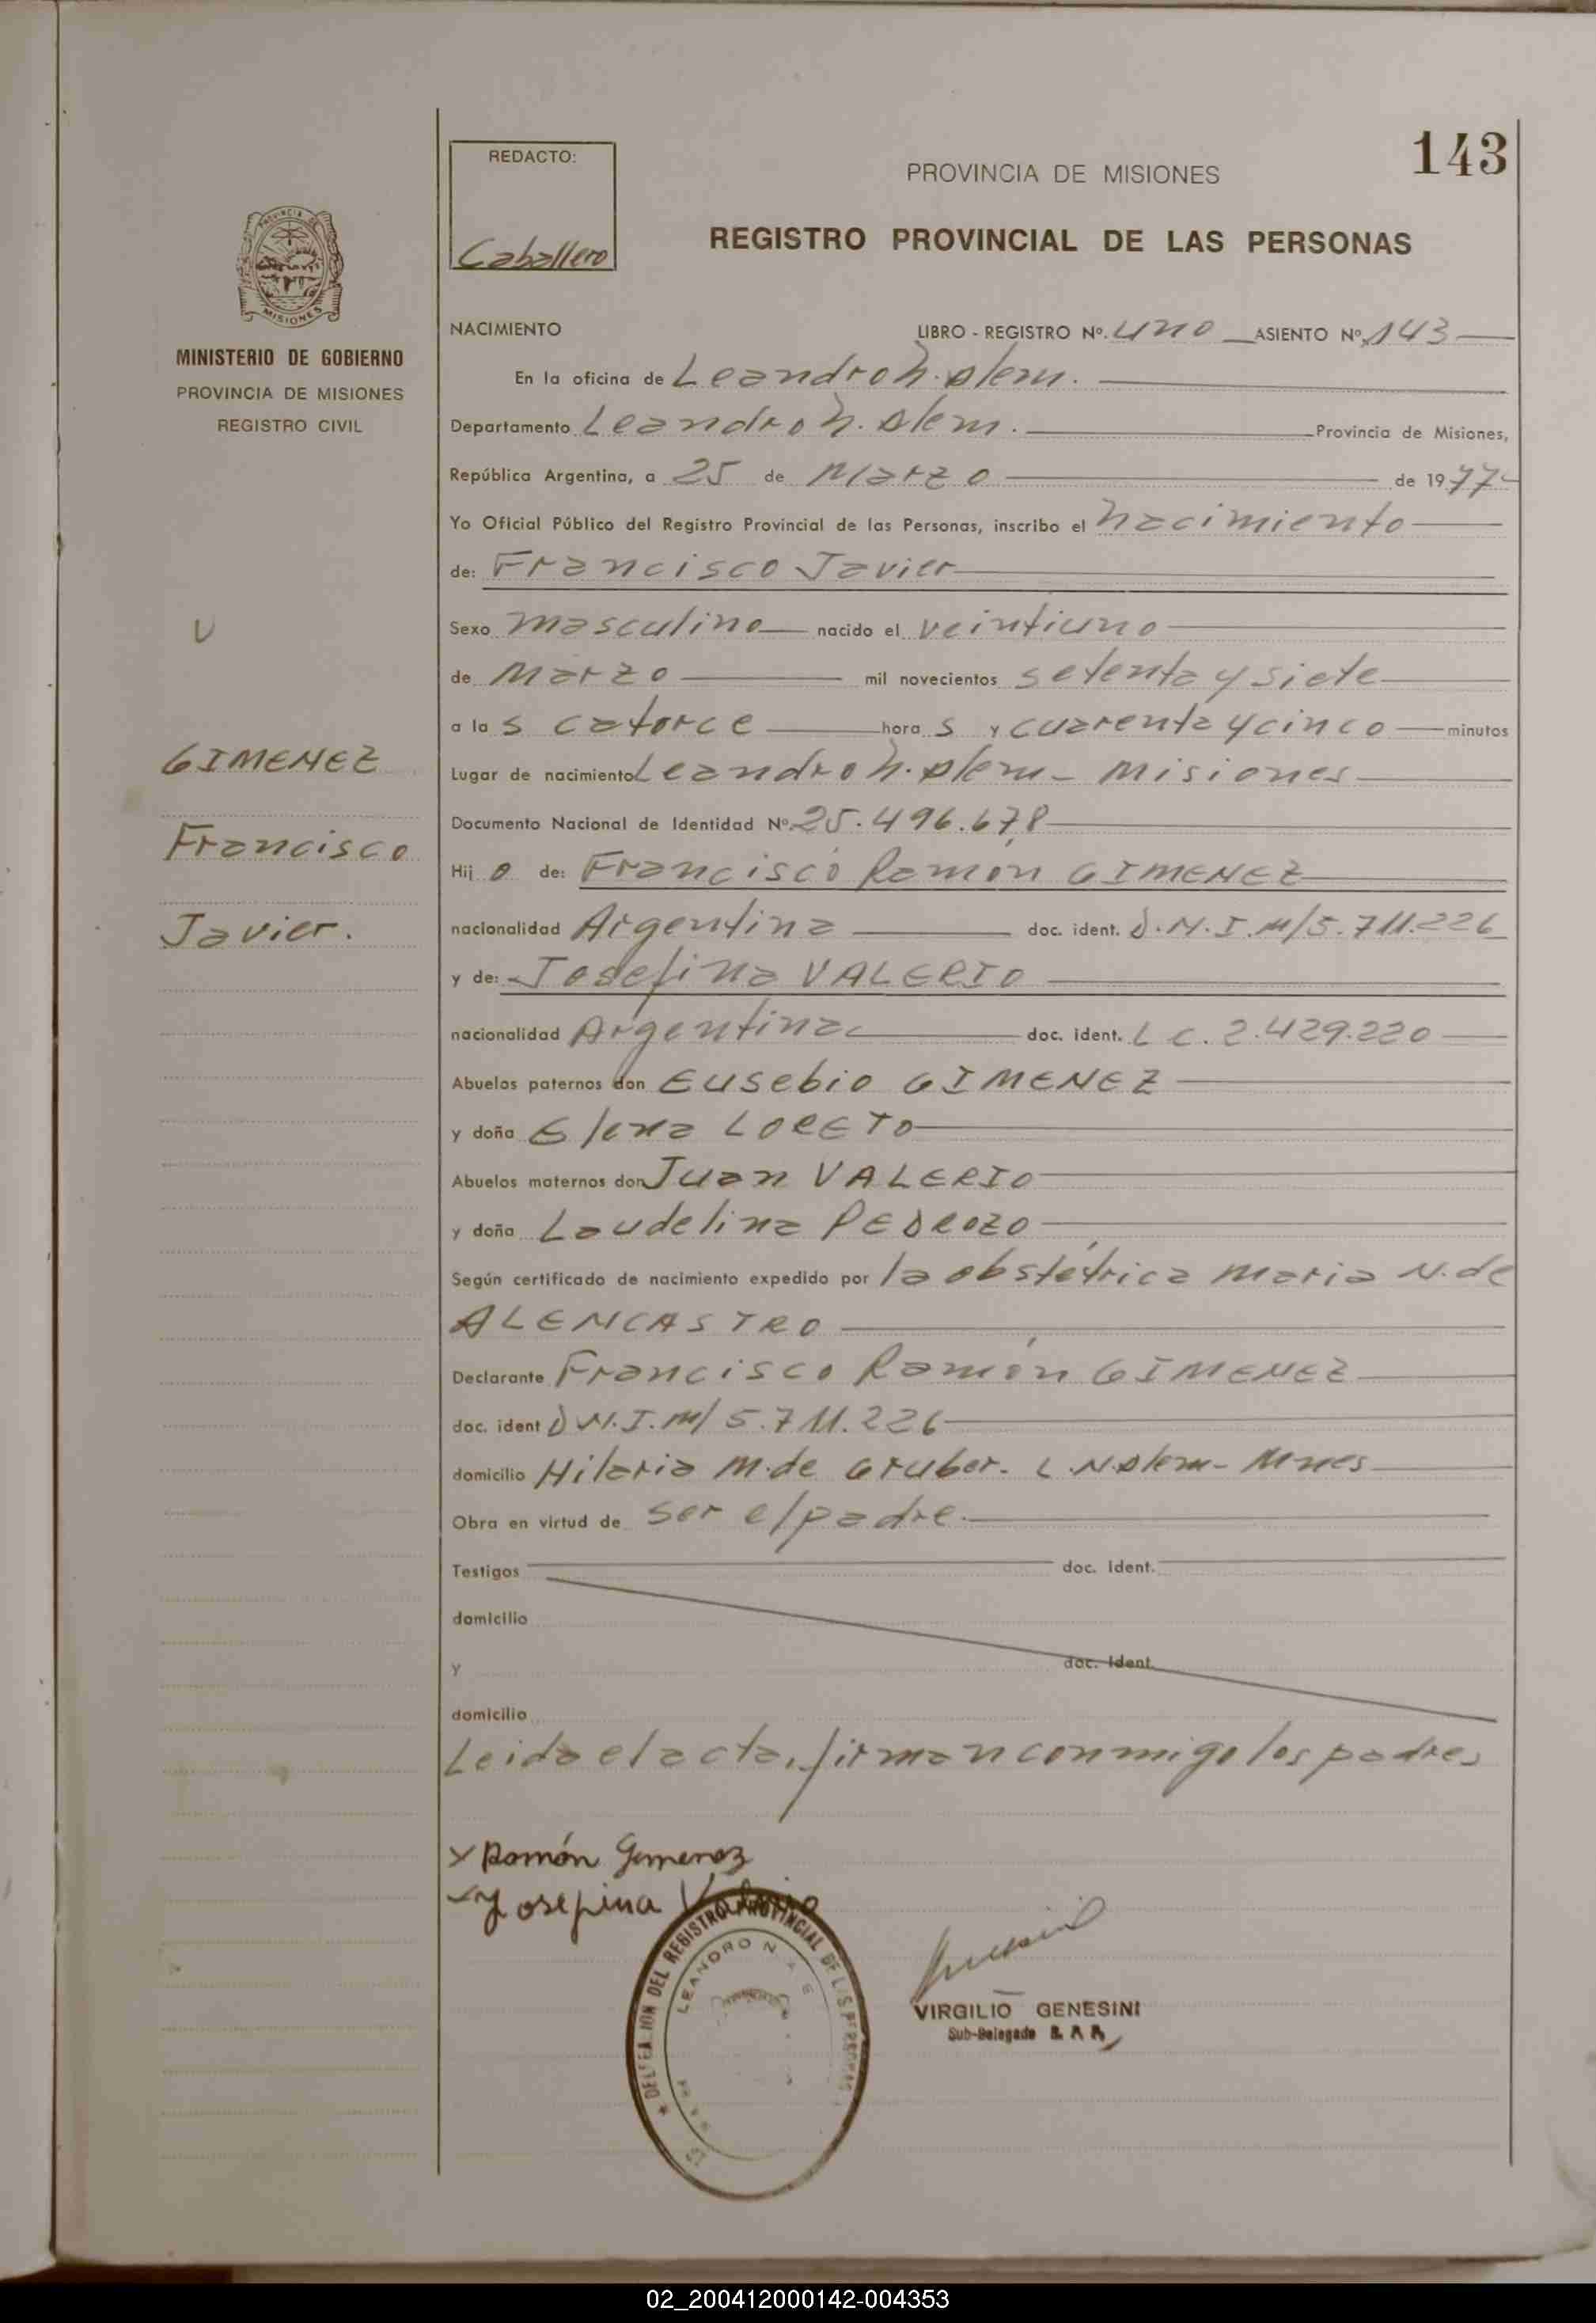 143
REDACTO:
Caballero
PROVINCIA DE MISIONES
REGISTRO PROVINCIAL DE LAS PERSONAS
PROVINCIA DE
MISIONES
MINISTERIO DE GOBIERNO
PROVINCIA DE MISIONES
REGISTRO CIVIL
GIMENEZ
Francisco
Javier.
NACIMIENTO LIBRO - REGISTRO Nº. uno ASIENTO Nº 143
En la oficina de Leandro N. Alem.
Departamento Leandro N. Alem. Provincia de Misiones,
República Argentina, a 25 de Marzo de 1977
Yo Oficial Público del Registro Provincial de las Personas, inscribo el nacimiento
de: Francisco Javier
Sexo masculino nacido el veintiuno
de Marzo mil novecientos setenta y siete
a las catorce horas y cuarenta y cinco minutos
Lugar de nacimiento Leandro N. Alem - Misiones
Documento Nacional de Identidad Nº 25.496.678
Hijo de: Francisco Ramón GIMENEZ
nacionalidad Argentina doc. ident. D.N.I. M/5.711.226
y de: Josefina VALERIO
nacionalidad Argentina doc. ident. L C. 2.429.220
Abuelos paternos don Eusebio GIMENEZ
y doña Elena LORETO
Abuelos maternos don Juan VALERIO
y doña Laudelina PEDROZO
Según certificado de nacimiento expedido por la obstétrica Maria N. de
ALENCASTRO
Declarante Francisco Ramón GIMENEZ
doc. ident D.N.I. M/ 5.711.226
domicilio Hilaria M. de Gruber. L.N. Alem - Mnes
Obra en virtud de ser el padre.
Testigos doc. ident.
domicilio
y doc. ident.
domicilio
Leida el acta, firman conmigo los padres
x Ramón Gimenez
Josefina Valerio
DELEGACION DEL REGISTRO PROVINCIAL DE LAS PERSONAS
LEANDRO N. A
VIRGILIO GENESINI
Sub-Delegado
02_200412000142-004353